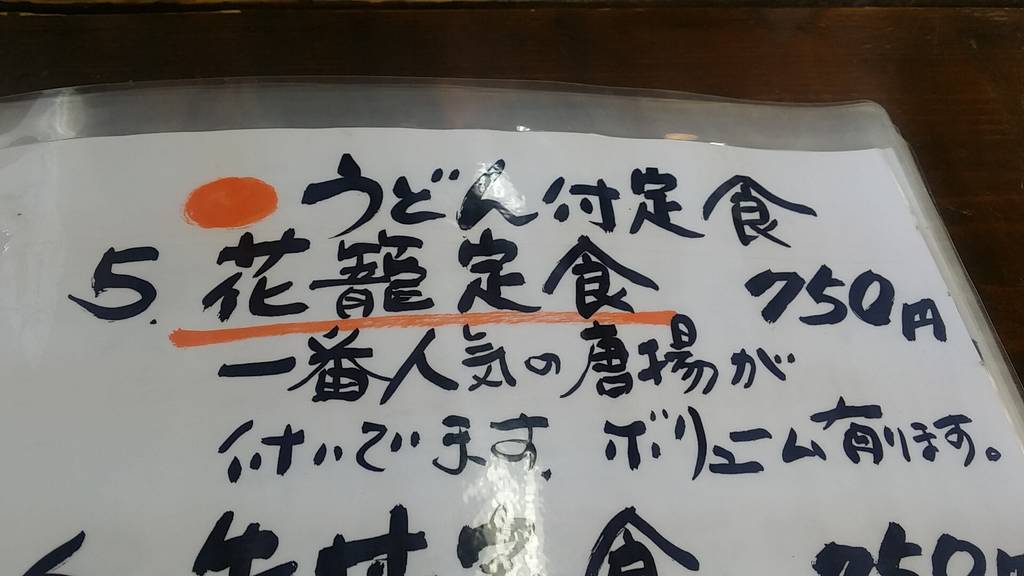 うどん付定食
5. 花籠定食 750円
一番人気の唐揚が
付いてます。ボリューム有ります。
牛丼定食 750円